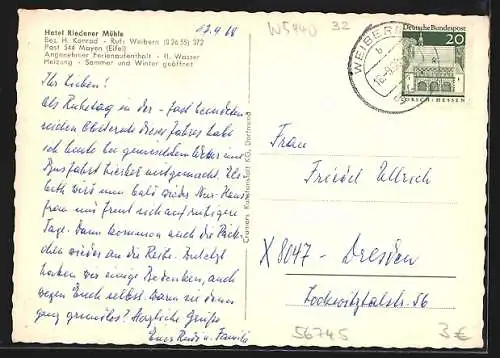 Hotel Riedener Mühle
Bes. H. Konrad - Ruf: Weibern (0 26 55) 372
Post 544 Mayen (Eifel)
Angenehmer Ferienaufenthalt - fl. Wasser
Heizung - Sommer und Winter geöffnet
68
W5440
32
Ihr Lieben!
Als Ruhetag in der - fast
dieses Jahres habe
ich heute bei
Busfahrt hierher mitgemacht.
wird nun bald wieder Nur-Haus-
frau und freut sich auf ruhigere
Tage. Dann kommen auch die Päck-
chen wieder an die Reihe. Zuletzt
hatten wir einige Bedenken, auch
wegen Euch selbst. Waren sie denn
ganz grundlos? Herzliche Grüße
Eure u. Familie
Cramers Kunstanstalt KG, Dortmund
WEIBERN
Deutsche Bundespost
20
LORSCH/HESSEN
Frau
Friedel Ullrich
X 8047 - Dresden
Lockwitztalstr. 56
56745
3€